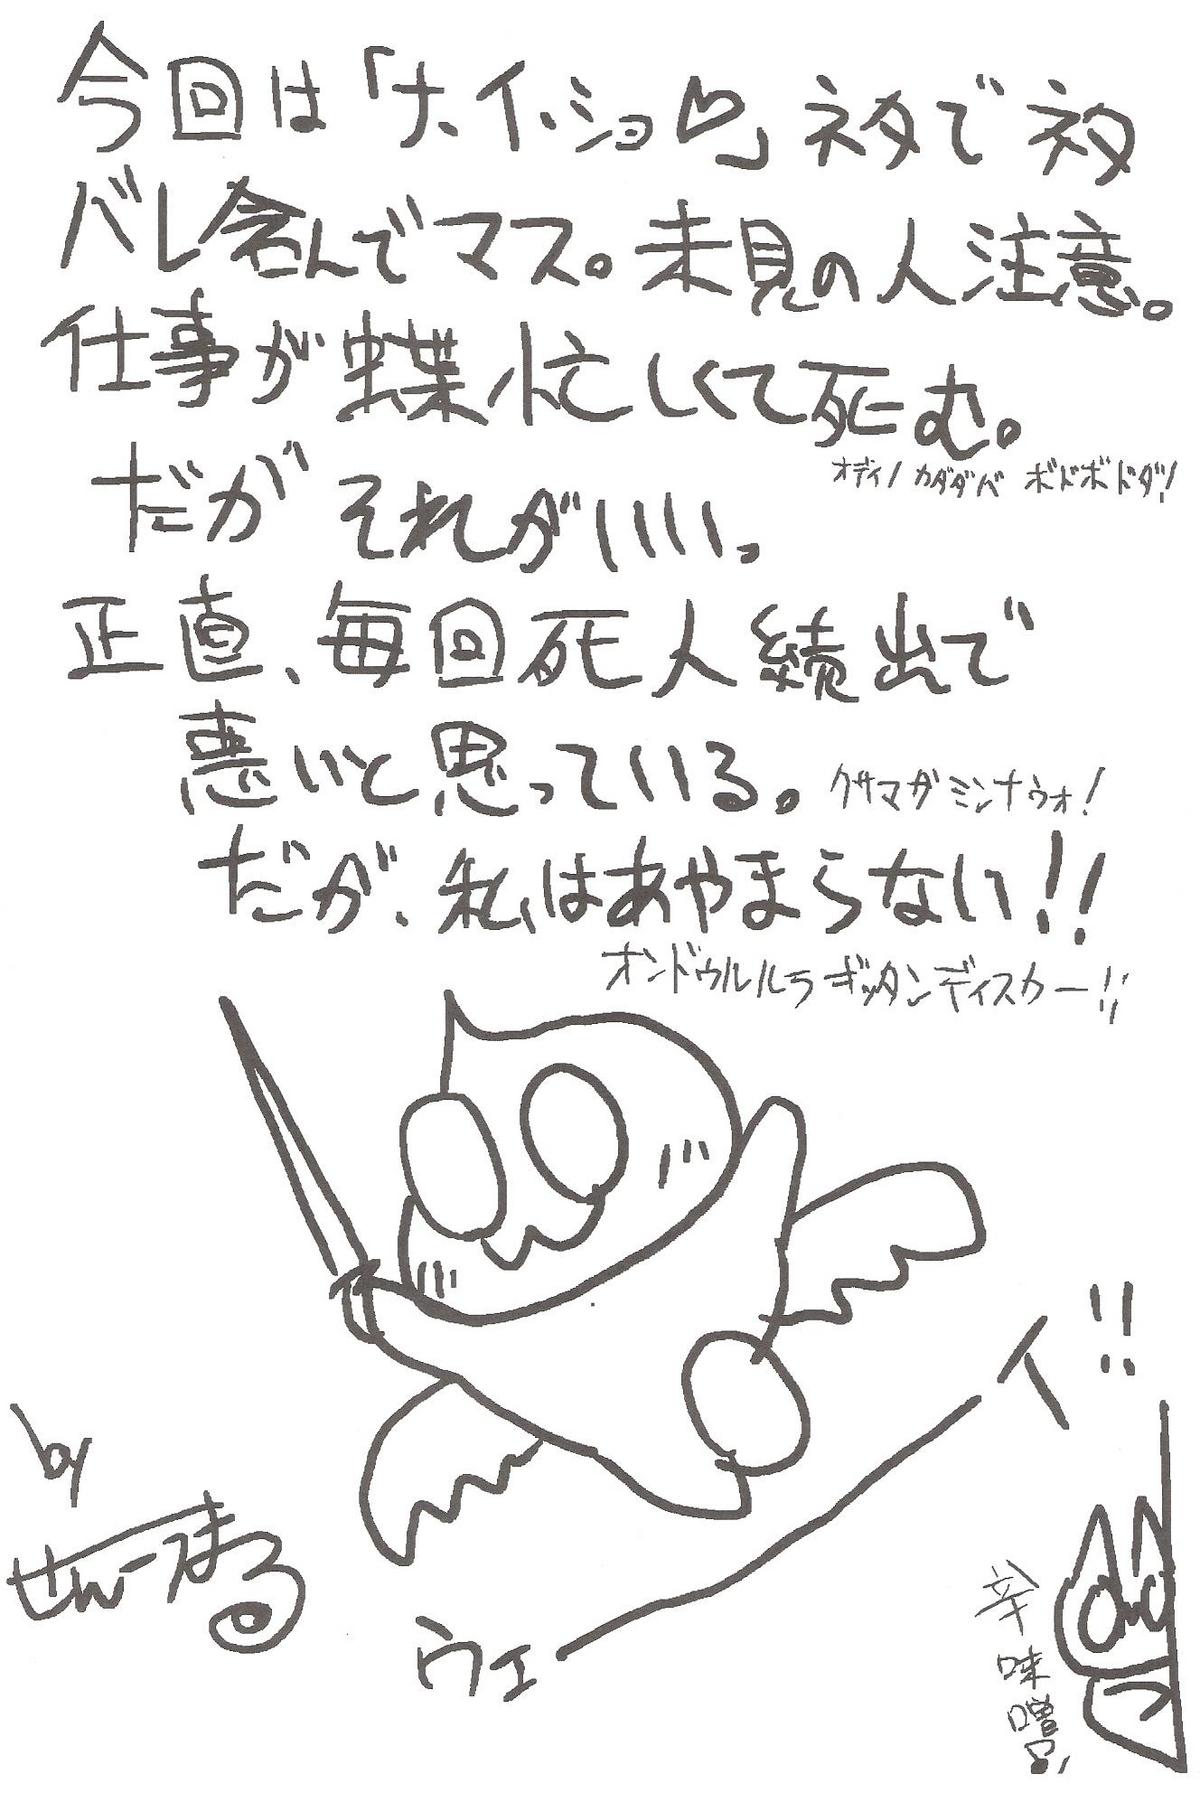 今回は「ナ、イ、ショ♡」ネタでネタ
バレ含んでマス。未見の人注意。
仕事が蝶忙しくて死む。
オディノカダダバ ボドボドダ!
だがそれがいい。
正直、毎回死人続出で
悪いと思っている。
クサマガミンナウォ!
だが、私はあやまらない!!
オンドゥルルラギッタンディスカー!!
ウェーイ!!
by
せんーつまる
辛味噌